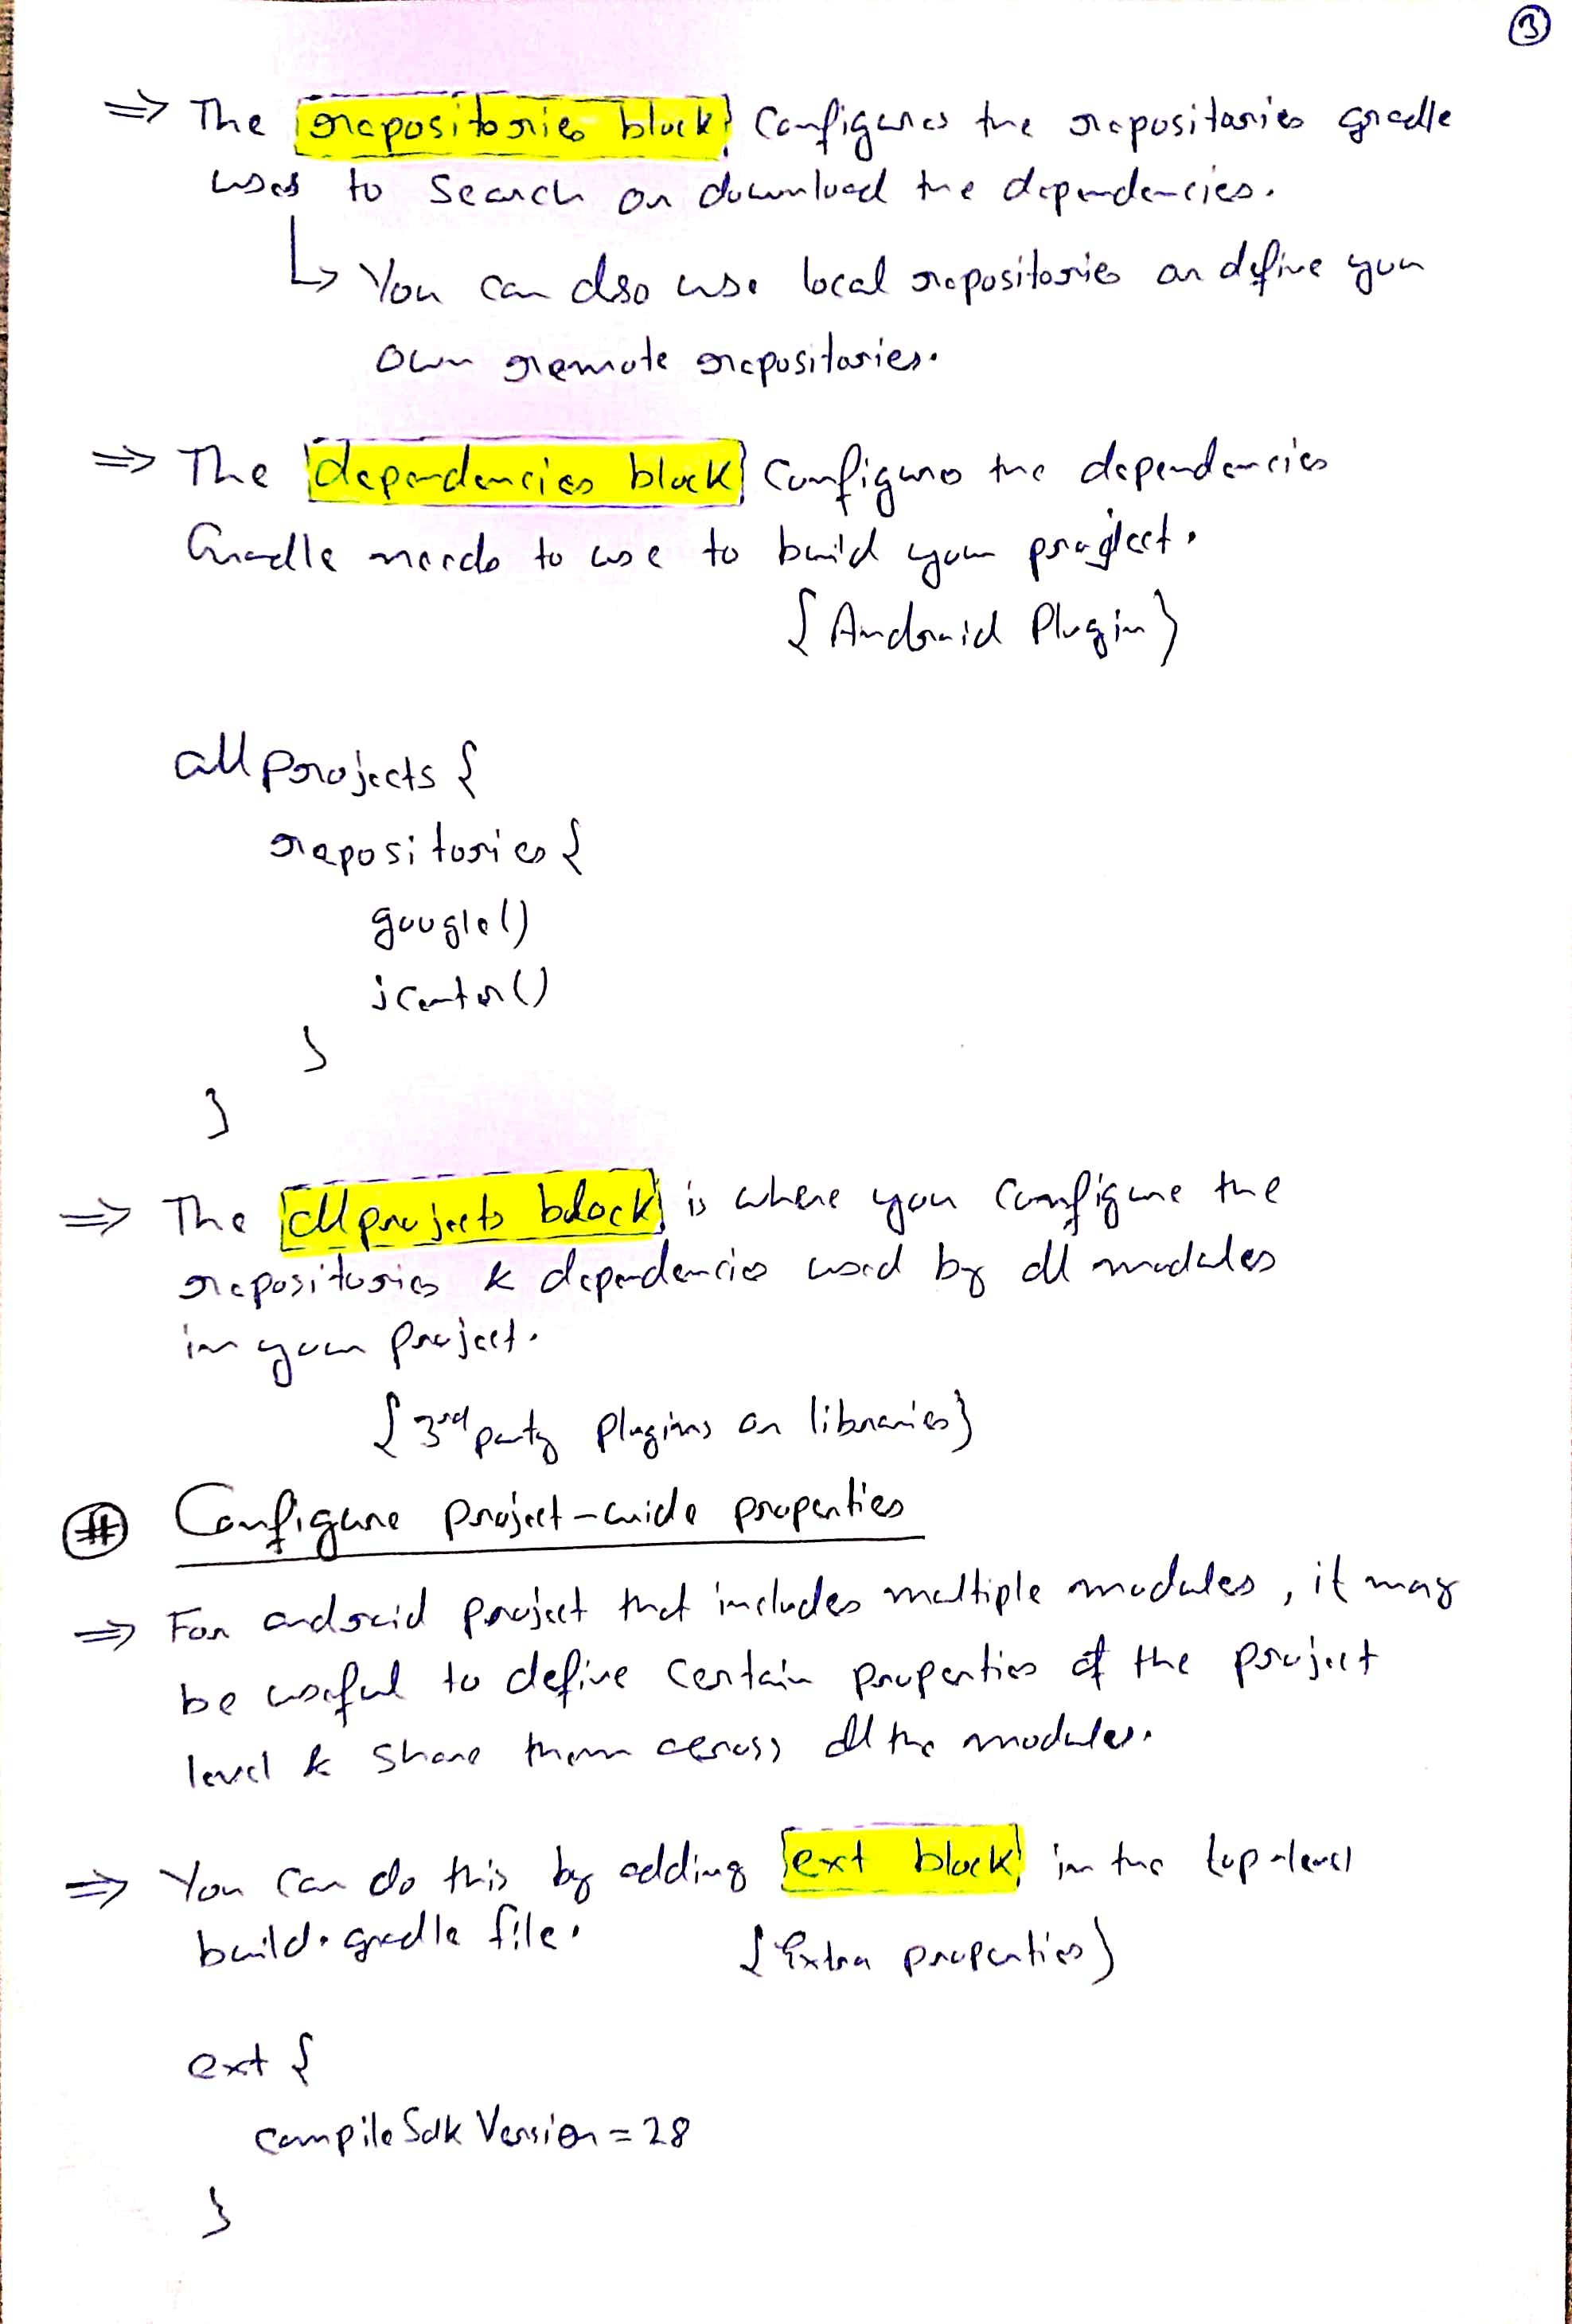 3
⇒ The repositories block configures the repositories gradle
uses to search or download the dependencies.
↳ You can also use local repositories or define your
own remote repositories.
⇒ The dependencies block configures the dependencies
Gradle needs to use to build your project.
{Android Plugin}
allprojects {
repositories {
google()
jcenter()
}
}
⇒ The allprojects block is where you configure the
repositories & dependencies used by all modules
in your project.
{3rd party plugins or libraries}
# Configure project-wide properties
⇒ For android project that includes multiple modules, it may
be useful to define certain properties at the project
level & share them across all the modules.
⇒ You can do this by adding ext block in the top-level
build.gradle file.
{Extra properties}
ext {
compileSdkVersion = 28
}